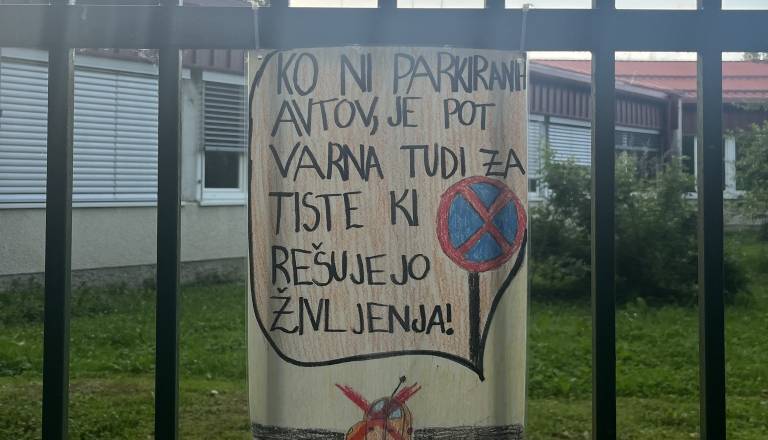 KO NI PARKIRANIH
AVTOV, JE POT
VARNA TUDI ZA
TISTE KI
REŠUJEJO
ŽIVLJENJA!